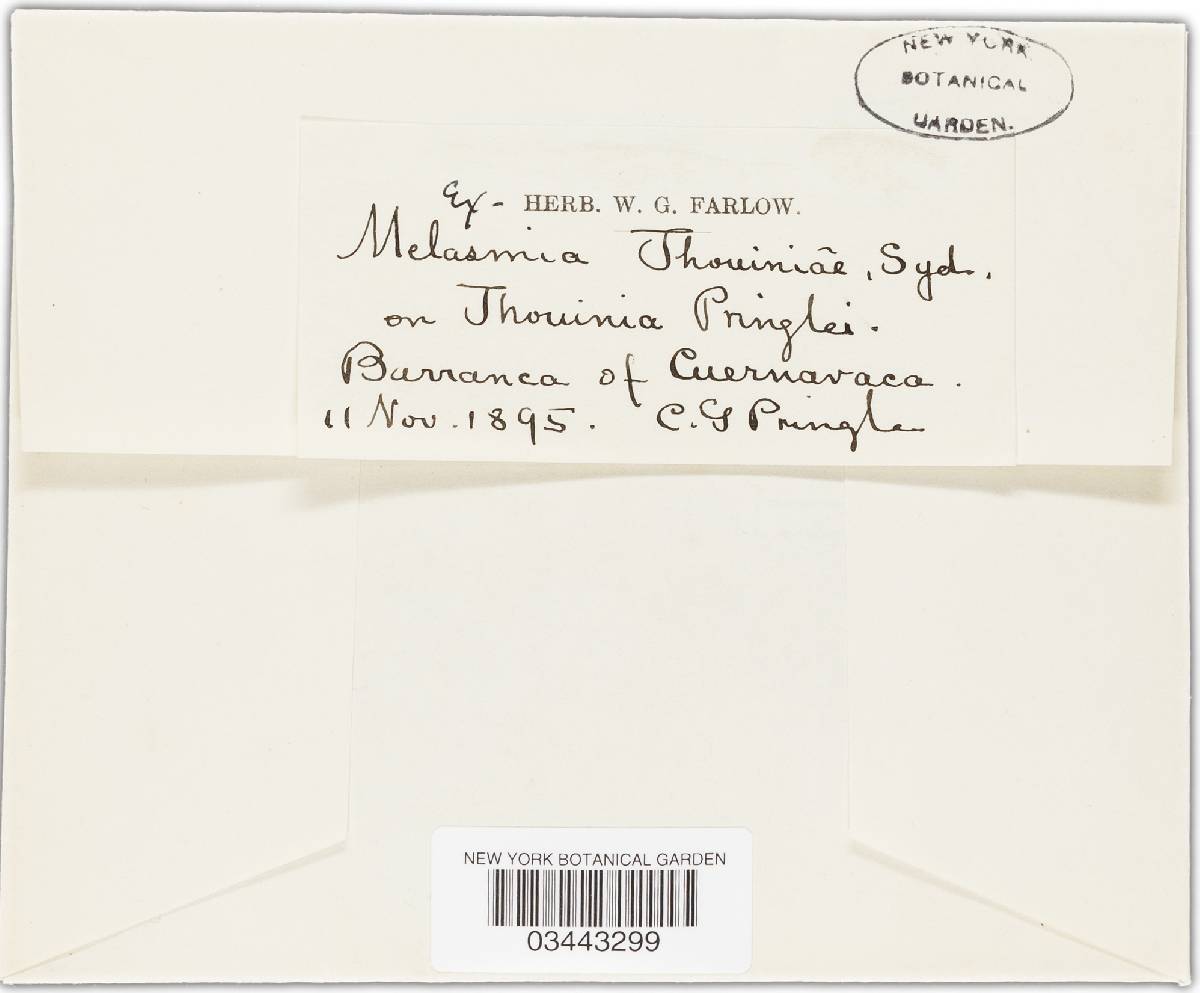 NEW YORK
BOTANICAL
GARDEN.
Ex- HERB. W. G. FARLOW.
Melasmia Thouiniae, Syd.
on Thouinia Pringlei.
Barranca of Cuernavaca.
11 Nov. 1895. C. G Pringle
NEW YORK BOTANICAL GARDEN
03443299